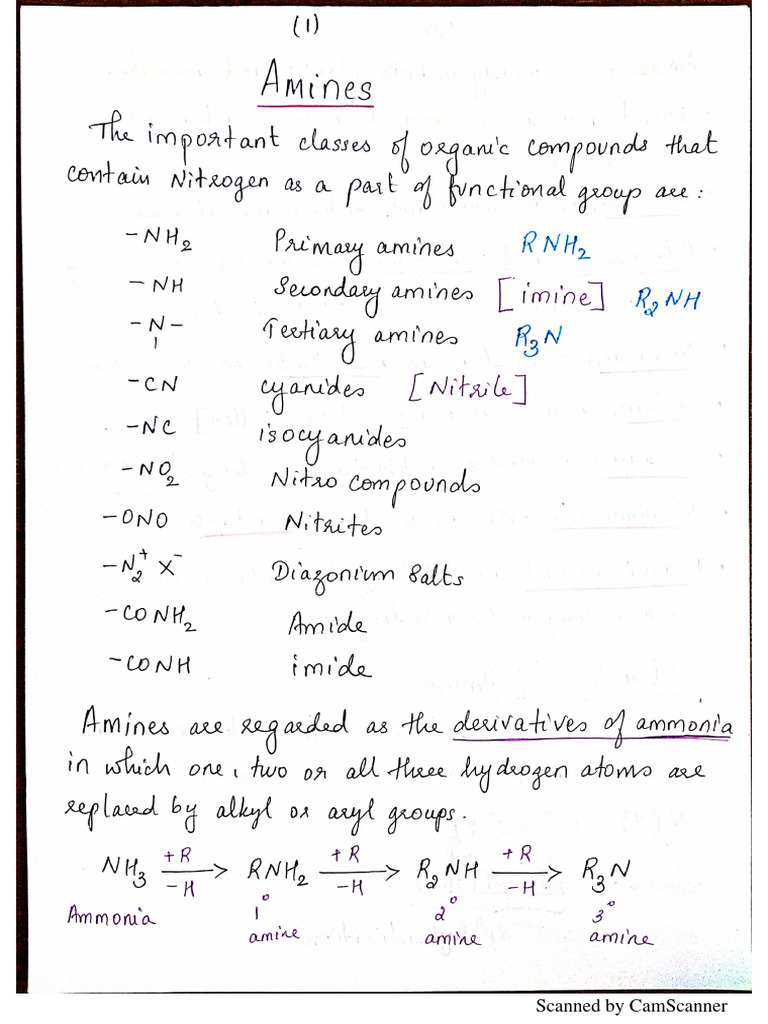 (1)
Amines
The important classes of organic compounds that
contain Nitrogen as a part of functional group are:
-NH₂ Primary amines RNH₂
-NH Secondary amines [imine] R₂NH
-N- Tertiary amines R₃N
-CN cyanides [Nitrile]
-NC isocyanides
-NO₂ Nitro compounds
-ONO Nitrites
-N₂⁺ X⁻ Diazonium Salts
-CONH₂ Amide
-CONH imide
Amines are regarded as the derivatives of ammonia
in which one, two or all three hydrogen atoms are
replaced by alkyl or aryl groups.
+R +R +R
NH₃ → RNH₂ → R₂NH → R₃N
-H -H -H
Ammonia 1° 2° 3°
amine amine amine
Scanned by CamScanner